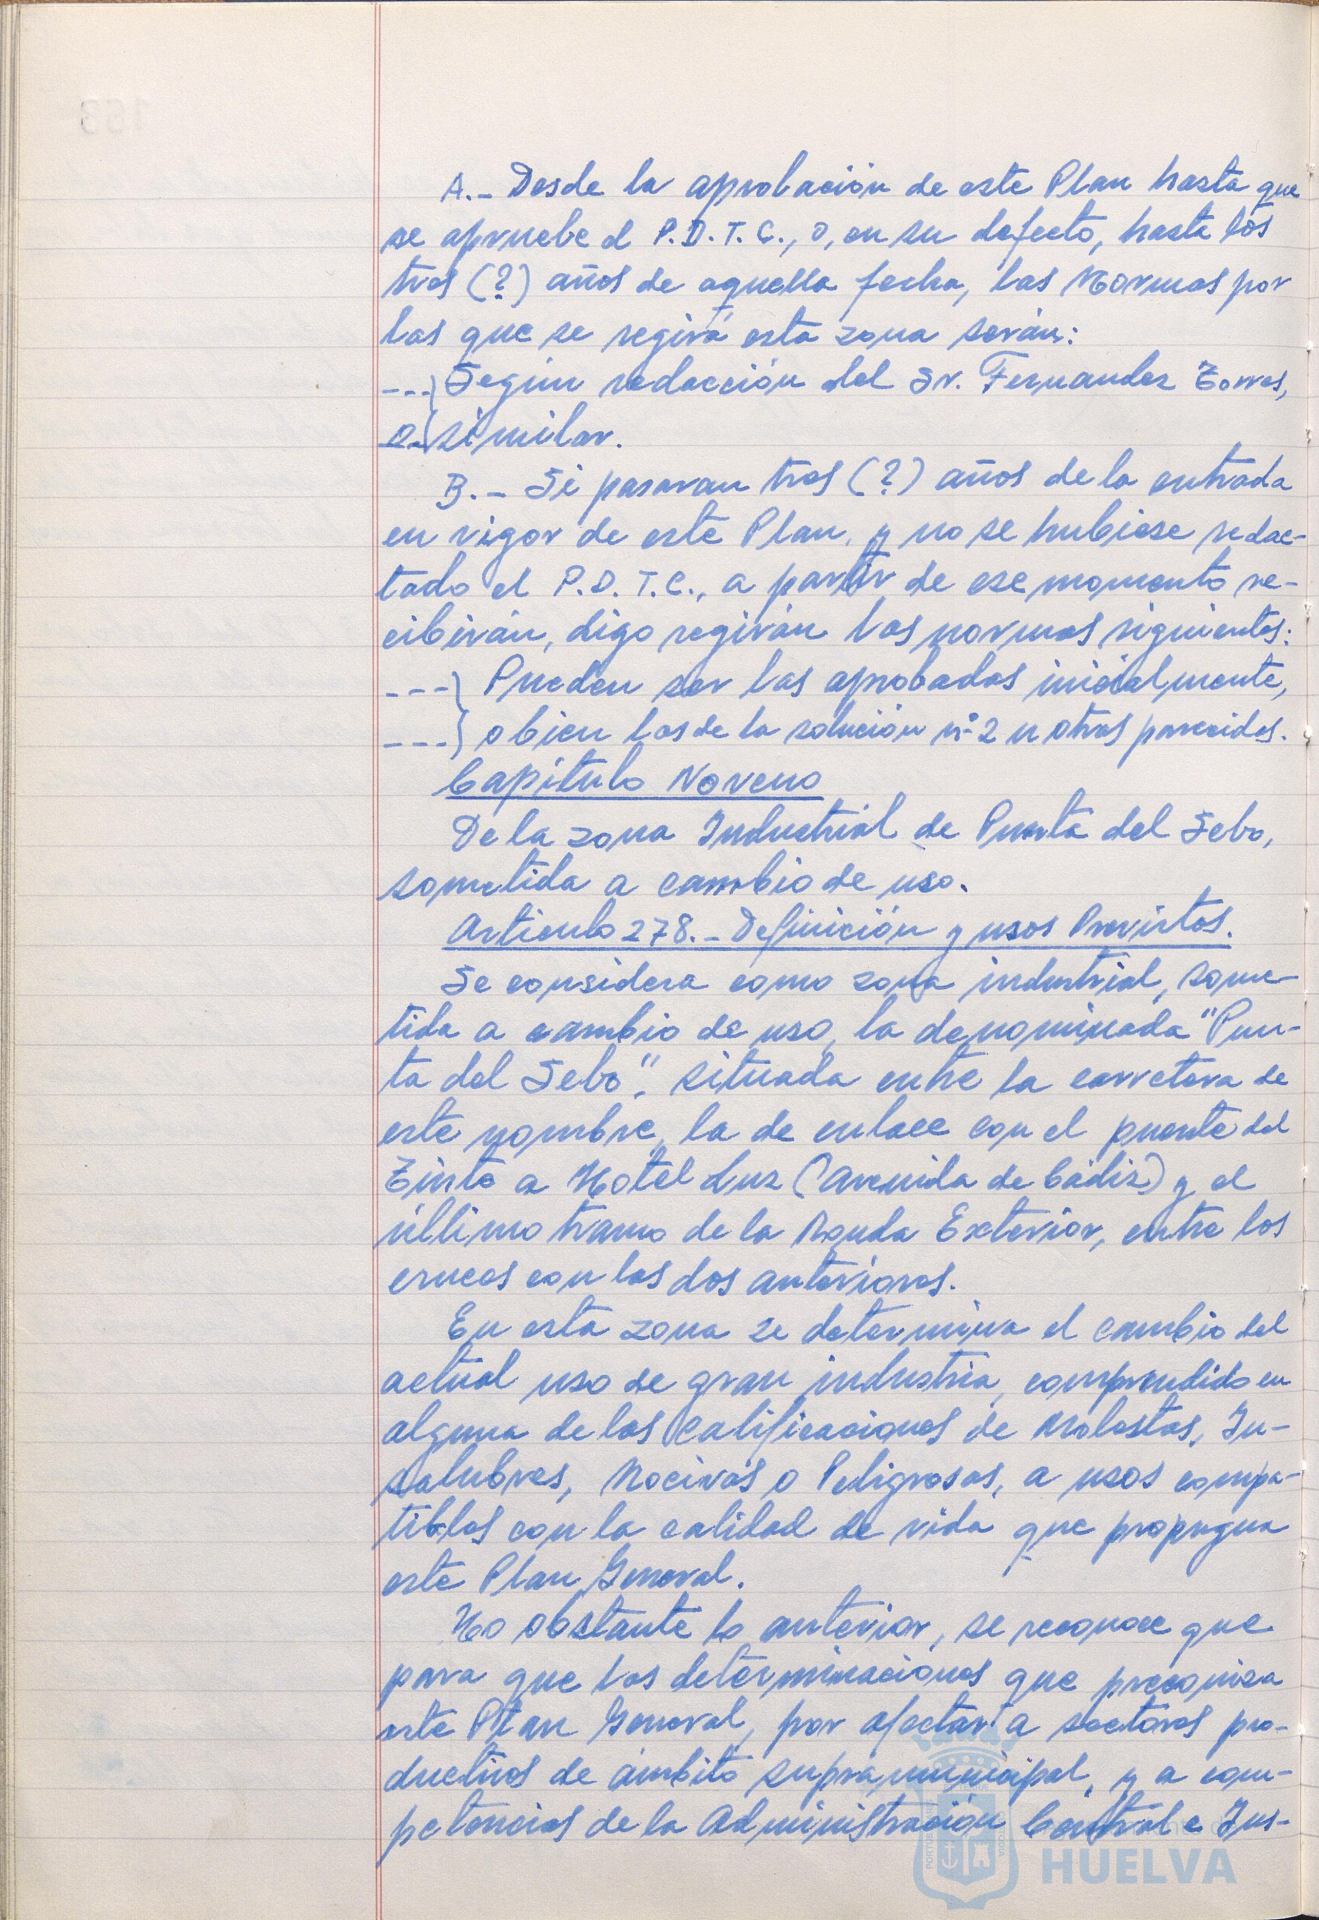 A.- Desde la aprobación de este Plan hasta que
se apruebe el P.D.T.C., o, en su defecto, hasta los
tres (?) años de aquella fecha, las Normas por
las que se regirá esta zona serán:
---} Según redacción del Sr. Fernandez Torres,
o similar.
B.- Si pasaran tres (?) años de la entrada
en vigor de este Plan, y no se hubiese redac-
tado el P.D.T.C., a partir de ese momento re-
cibirán, digo regirán las normas siguientes:
---} Pueden ser las aprobadas inicialmente,
---} o bien las de la solución nº 2 u otras parecidas.
Capítulo Noveno
De la zona Industrial de Punta del Sebo,
sometida a cambio de uso.
Artículo 278.- Definición y usos Previstos.
Se considera como zona industrial, some-
tida a cambio de uso, la denominada "Pun-
ta del Sebo", situada entre la carretera de
este nombre, la de enlace con el puente del
Tinto a Hotel Luz (Avenida de Cádiz) y el
último tramo de la Ronda Exterior, entre los
cruces con las dos anteriores.
En esta zona se determina el cambio del
actual uso de gran industria, comprendido en
alguna de las Calificaciones de Molestas, In-
salubres, Nocivas o Peligrosas, a usos compa-
tibles con la calidad de vida que propugna
este Plan General.
No obstante lo anterior, se reconoce que
para que las determinaciones que preconiza
este Plan General, por afectar a sectores pro-
ductivos de ámbito supramunicipal, y a com-
petencias de la Administración Central e Ins-
HUELVA